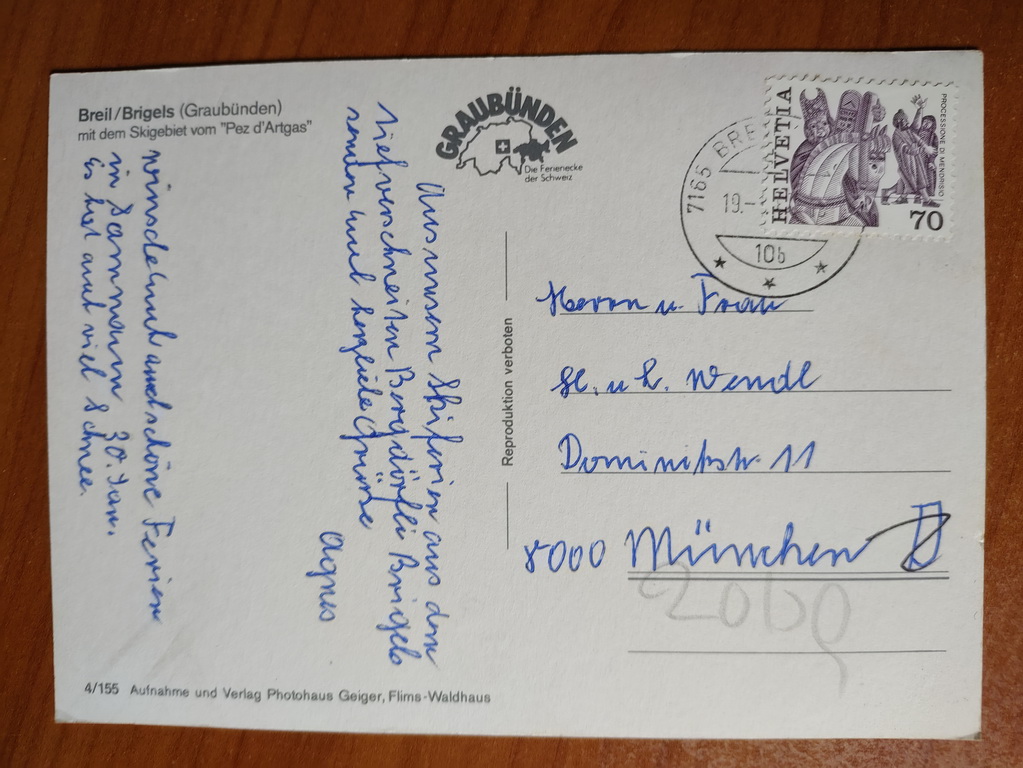 Breil/Brigels (Graubünden)
mit dem Skigebiet vom "Pez d'Artgas"
GRAUBÜNDEN
Die Ferienecke
der Schweiz
7165 BRE
19.-
10b
HELVETIA
PROCESSIONE DI MENDRISIO
70
Aus unsern Skiferien aus dem
tiefverschneiten Bergdörfli Brigels
senden wir herzliche Grüsse
Agnes
wünsche auch schöne Ferien
in 30. Jan.
Es hat auch viel Schnee.
Reproduktion verboten
Herrn u. Frau
H. u. L. Wendl
Dominikstr. 11
8000 München
D
2060
4/155 Aufnahme und Verlag Photohaus Geiger, Flims-Waldhaus